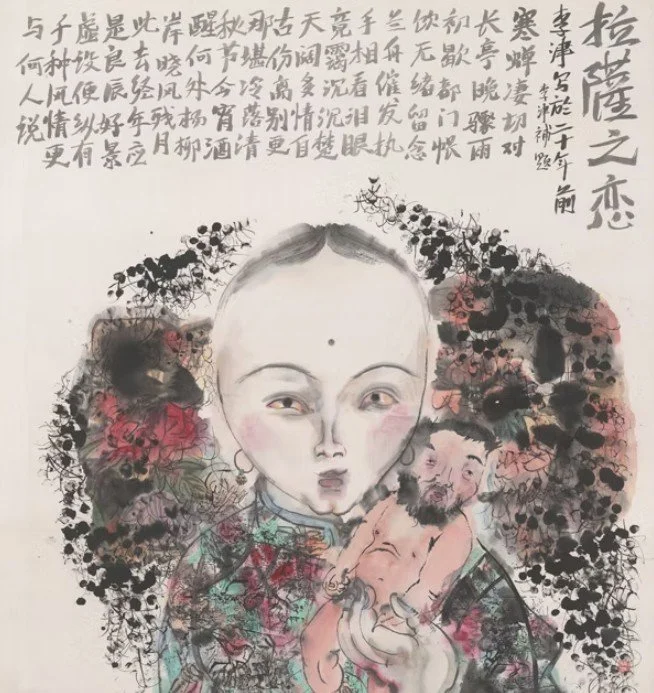 拉薩之恋
李津写於二十年前
李津補題
寒蝉凄切对
长亭晚骤雨
初歇都门怅
饮无绪留念
兰舟催发执
手相看泪眼
竟霭沉沉楚
天阔多情自
古伤离别更
那堪冷落清
秋节今宵酒
醒何处杨柳
岸晓风残月
此去经年应
是良辰好景
虚设便纵有
千种风情更
与何人说